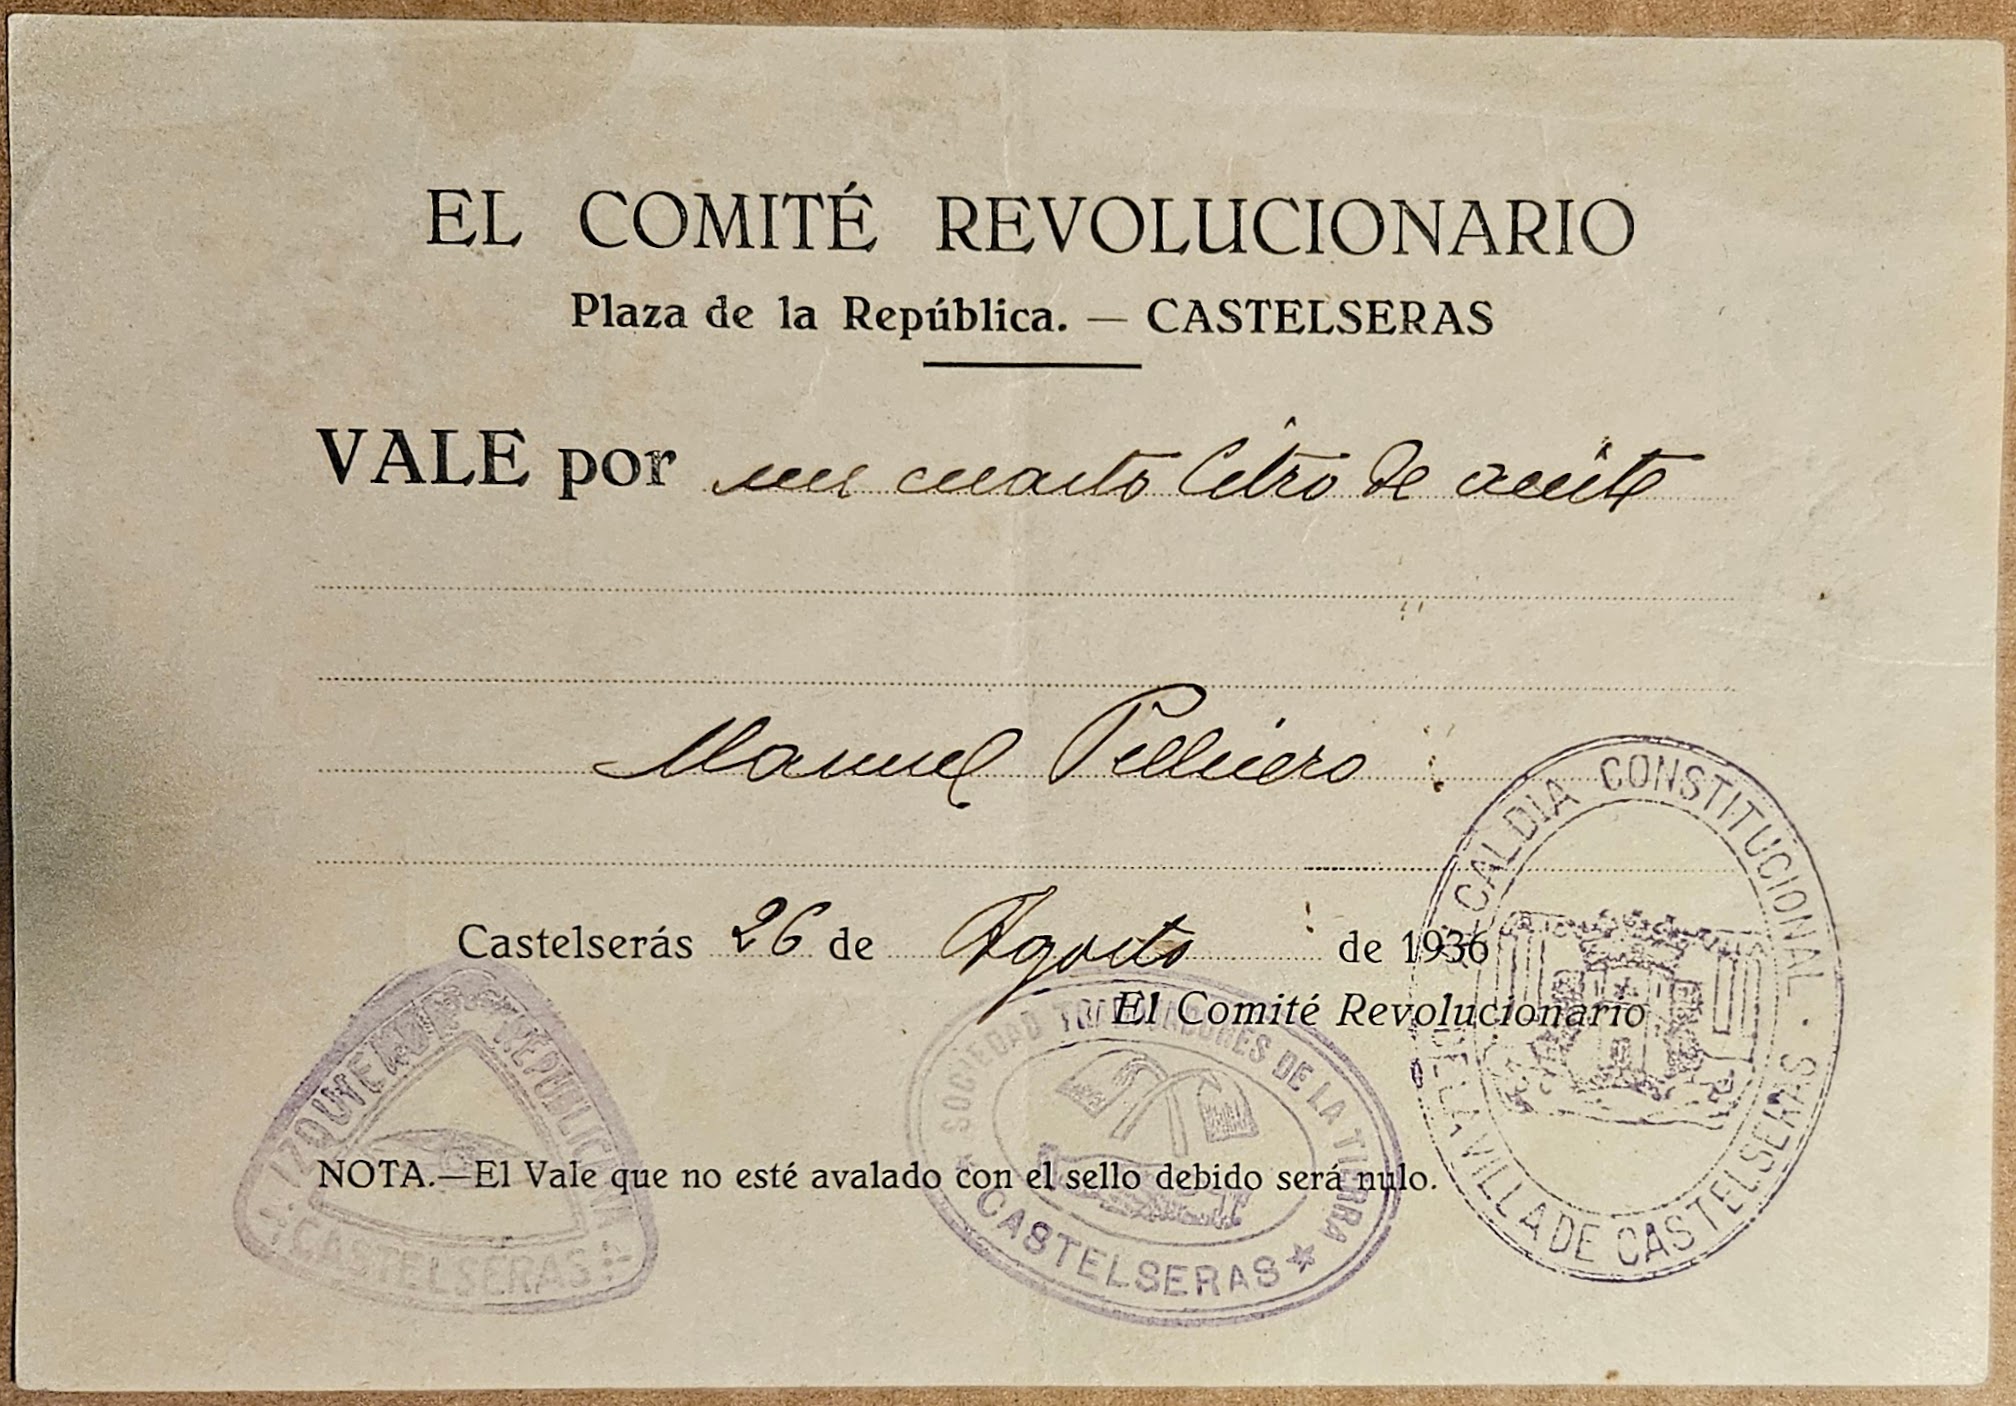 EL COMITÉ REVOLUCIONARIO
Plaza de la República. — CASTELSERAS
VALE por un cuarto litro de aceite
Manuel Pellicero
Castelserás 26 de Agosto de 1936
El Comité Revolucionario
NOTA.—El Vale que no esté avalado con el sello debido será nulo.
IZQUIERDA REPUBLICANA
CASTELSERAS
SOCIEDAD TRABAJADORES DE LA TIERRA
CASTELSERAS
ALCALDIA CONSTITUCIONAL
DE LA VILLA DE CASTELSERAS